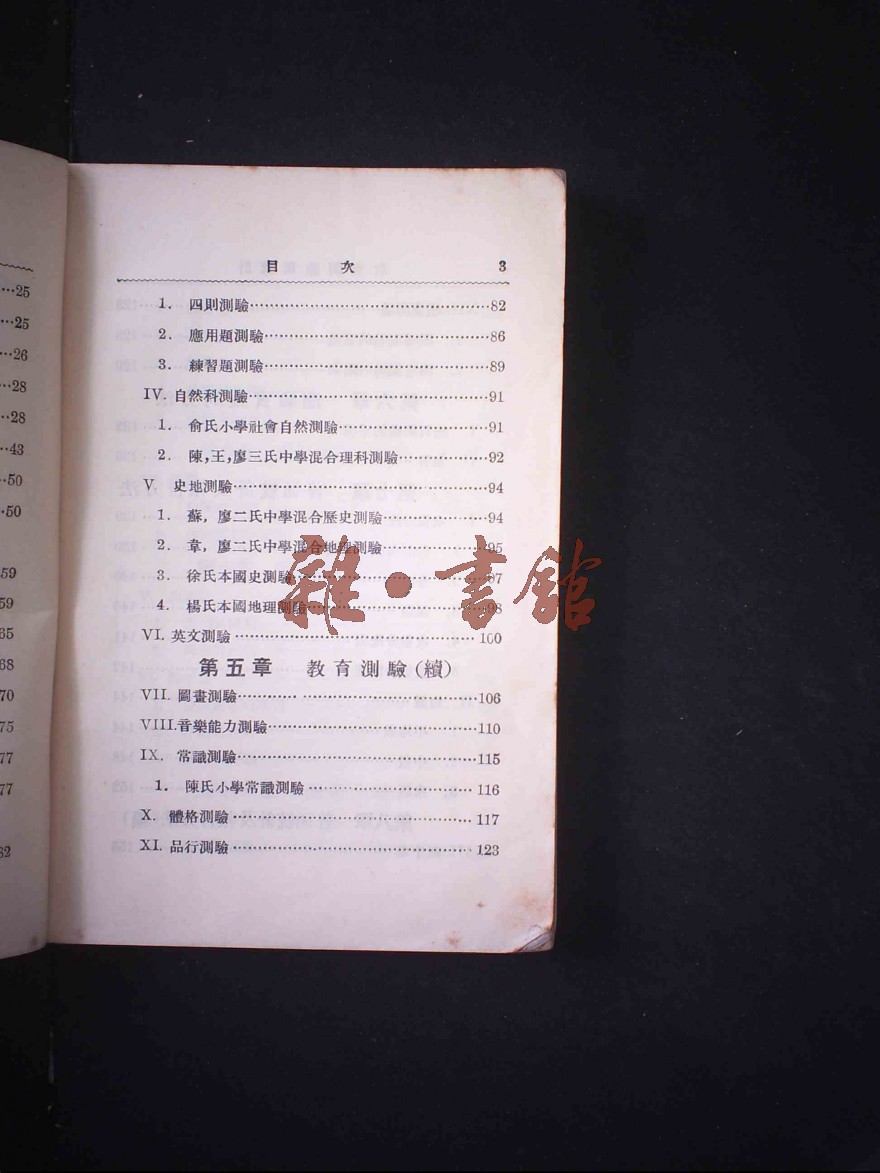 …25
…25
…26
…28
…28
…43
…50
…50
59
59
65
68
70
75
77
77
62
目 次 3
1. 四則測驗……82
2. 應用題測驗……86
3. 練習題測驗……89
IV. 自然科測驗……91
1. 俞氏小學社會自然測驗……91
2. 陳,王,廖三氏中學混合理科測驗……92
V. 史地測驗……94
1. 蘇,廖二氏中學混合歷史測驗……94
2. 韋,廖二氏中學混合地理測驗……95
3. 徐氏本國史測驗……97
4. 楊氏本國地理測驗……98
VI. 英文測驗……100
第五章 教育測驗(續)
VII. 圖畫測驗……106
VIII. 音樂能力測驗……110
IX. 常識測驗……115
1. 陳氏小學常識測驗……116
X. 體格測驗……117
XI. 品行測驗……123
雜·書館